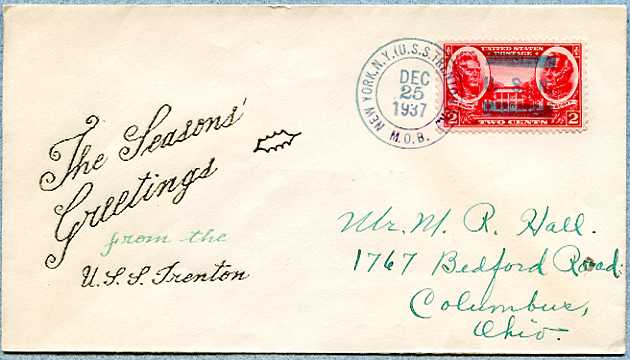 The Seasons'
Greetings
from the
U.S.S. Trenton
NEW YORK, N.Y. (U.S.S. TRENTON)
DEC
25
1937
M.O.B.
UNITED STATES
POSTAGE
2 TWO CENTS 2
Mr. M. R. Hall.
1767 Bedford Road.
Columbus,
Ohio.